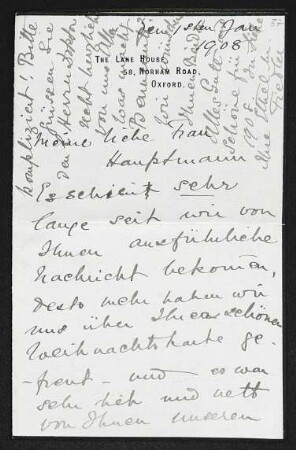 den 1sten Jan
1908
THE LANE HOUSE,
58, NORHAM ROAD,
OXFORD.
Meine liebe Frau
Hauptmann
Es scheint sehr
lange seit wir von
Ihnen ausführliche
Nachricht bekommen,
desto mehr haben wir
uns über Ihre schönen
Weihnachtskarte ge-
-freut - und es war
sehr lieb und nett
von Ihnen unseren
kompliziert! Bitte
grüssen Sie
den Herrn Doktor
recht herzlich
von uns Alle
was macht
Benvenuto?
Wir wünschen
Ihnen Beiden
Alles Gute und
Schöne für
1908.
Ihre
Fiedler